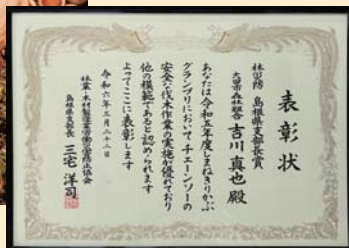 表彰状
林災防 島根県支部長賞
大田市森林組合 吉川真也殿
あなたは令和五年度しまねきりかぶ
グランプリにおいてチェーンソーの
安全な伐木作業の実施が優れており
他の模範であると認められます
よってここに表彰します
令和六年三月二十二日
林業・木材製造業労働災害防止協会
島根県支部長 三宅洋司